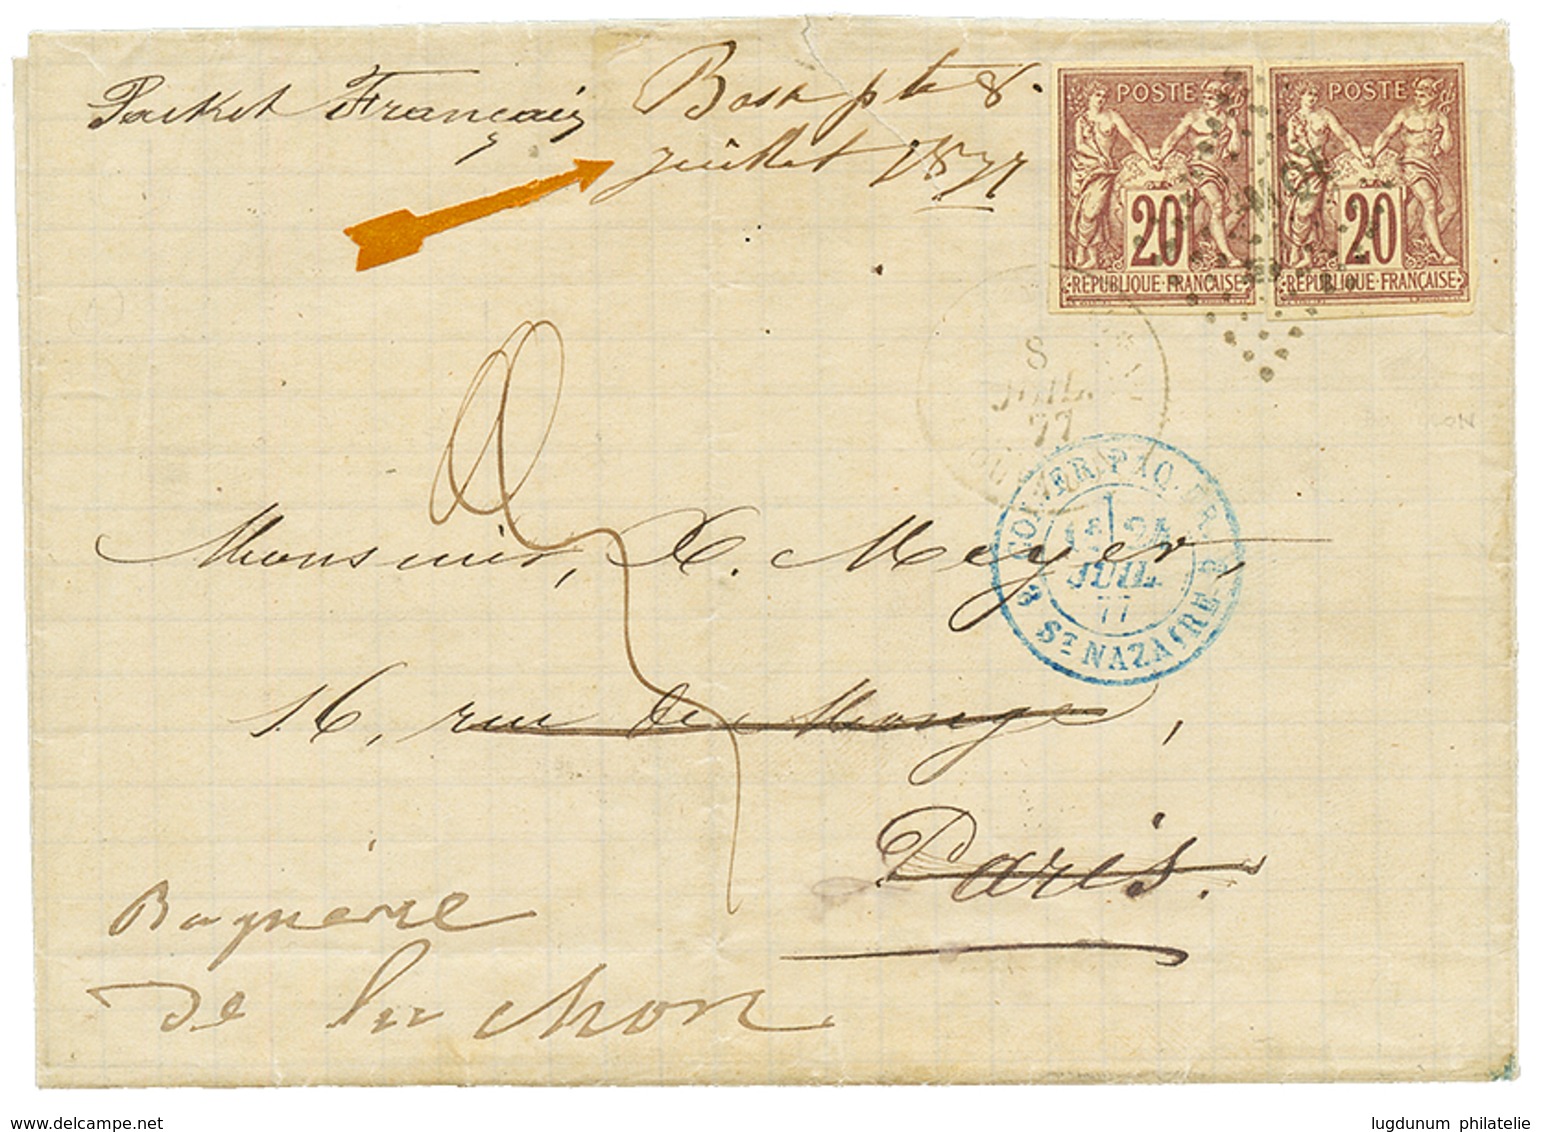 Packet Français Basse pte 8.
juillet 1877
POSTE
20
REPUBLIQUE FRANÇAISE
POSTE
20
REPUBLIQUE FRANÇAISE
8
JUIL.
77
COL. FR. PAQ. FR.
JUIL.
77
ST NAZAIRE
Monsieur, X. Meyer,
16, rue de Monge,
Paris.
Bagnère
de luchon
delcampe.net
lugdunum philatelie